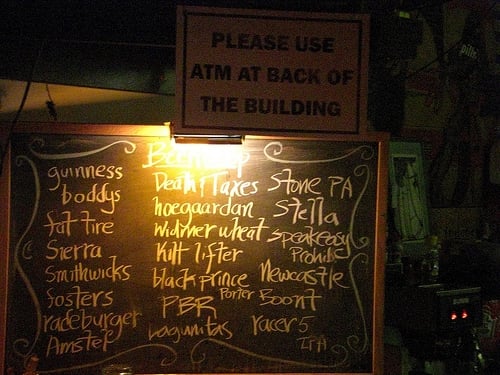 PLEASE USE
ATM AT BACK OF
THE BUILDING
guinness
boddys
fat tire
Sierra
Smithwicks
fosters
radeburger
Amstel
Death & Taxes
hoegaardan
widmer wheat
Kilt lifter
black prince
Porter
PBR
Lagunitas
Stone PA
Stella
Speakeasy
Prohib
Newcastle
Boont
racer 5
IPA